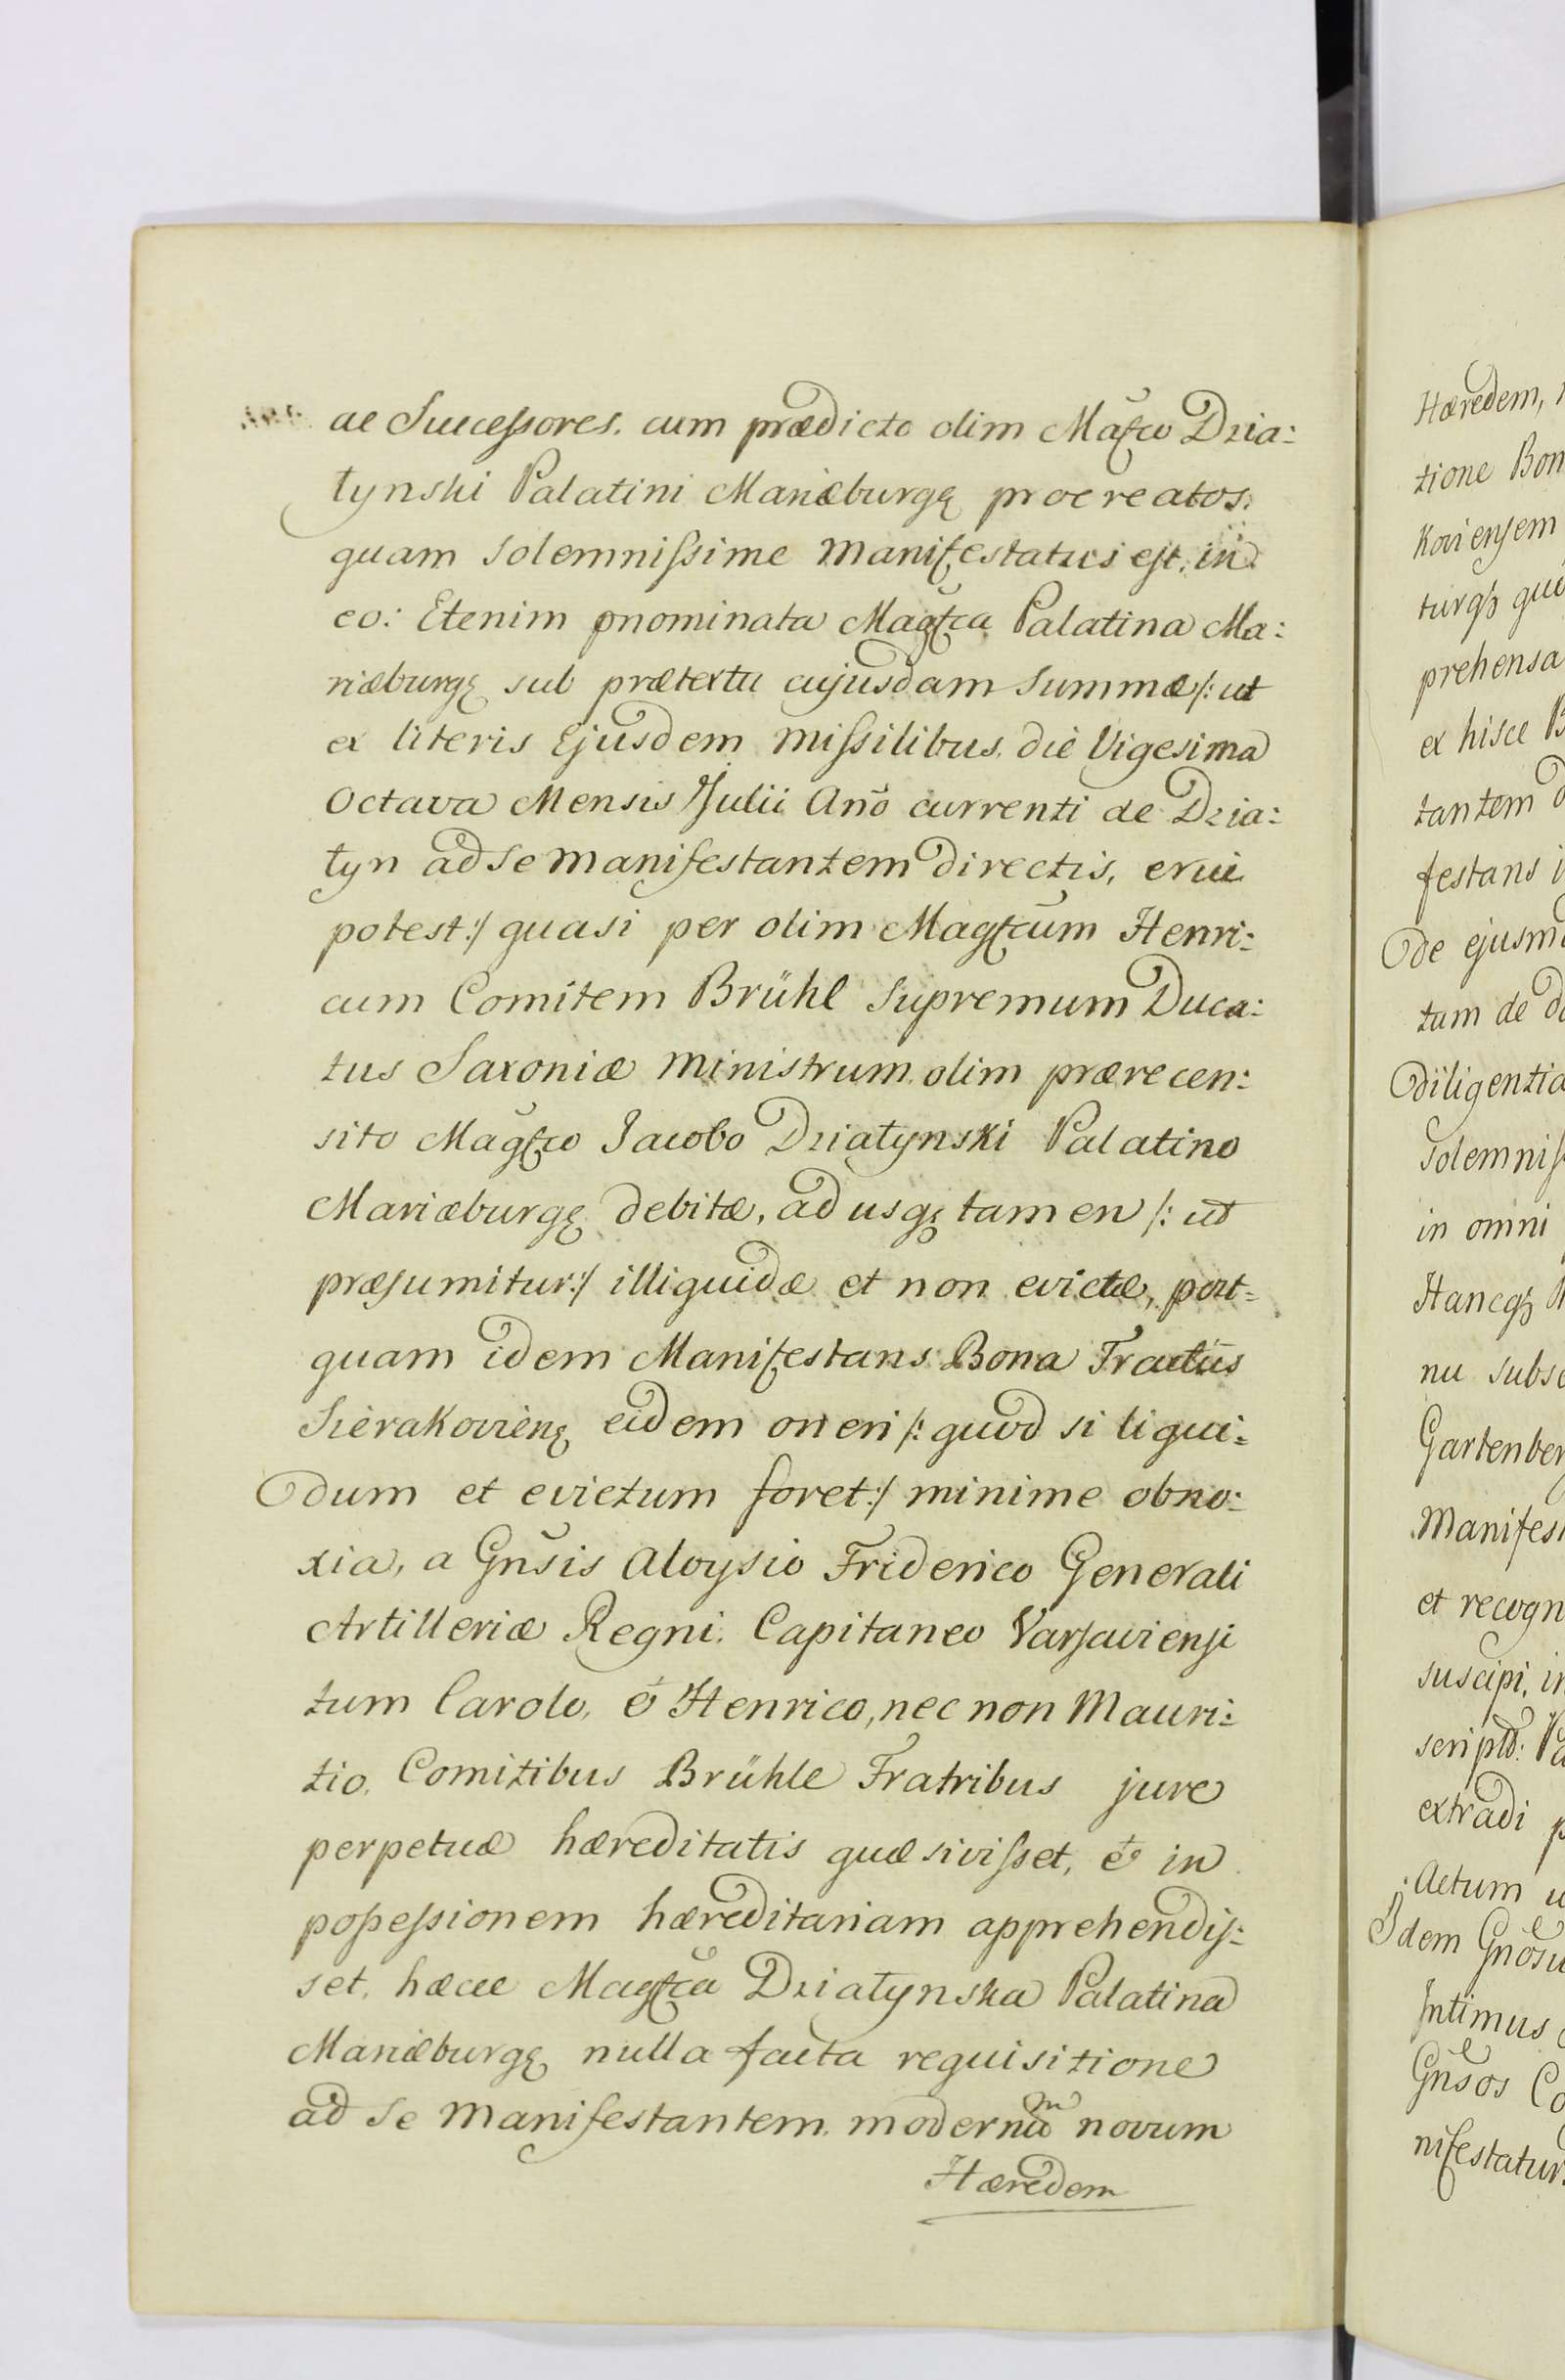 ac Successores. cum prædicto olim Mag̃fco Dzia:
łynski Palatini Mariæburgę procreatos.
quam solemnissime manifestatus est. in
eo: Etenim pnominata Mag̃fca Palatina Ma:
riæburgę sub prætextu cujusdam summæ /: ut
ex literis Ejusdem missilibus. die Vigesima
Octava Mensis Julii Añо currenti de Dzia:
łyn ad se manifestantem directis, erui
potest :/ quasi per olim Mag̃fcum Henri:
cum Comitem Brühl Supremum Duca:
tus Saxoniæ Ministrum olim prærecen:
sito Mag̃fco Jacobo Działynski Palatino
Mariæburgę debitæ, ad usqę tamen /: ut
præsumitur :/ illiquidæ et non evictæ, post=
quam idem Manifestans Bona Tractus
Sierakovienę eidem oneri /: quod si liqui:
dum et evictum foret :/ minime obno:
xia, a Gñsis Aloysio Friderico Generali
Artilleriæ Regni. Capitaneo Varsaviensi
tum Carolo, & Henrico, nec non Mauri:
tio. Comitibus Brühle Fratribus jure
perpetuæ hæreditatis quæsivisset, & in
possessionem hæreditariam apprehendis:
set. hæcce Mag̃fca Działynska Palatina
Mariæburgę nulla facta requisitione
ad se manifestantem. modernũ novum
Hæredem
Hæredem,
tione Bon
koviensem
turqȝ quo
prehensa
ex hisce B
tantem d
festans i
de ejusmo
tum de d
diligentia
solemniss
in omni
Hancqȝ M
nu subsc
Gartenber
Manifest
et recogn
suscipi, in
script̃: Pa
extradi p
Actum u
Idem Gñosu
Intimus
Gñsos Co
nifestatur.